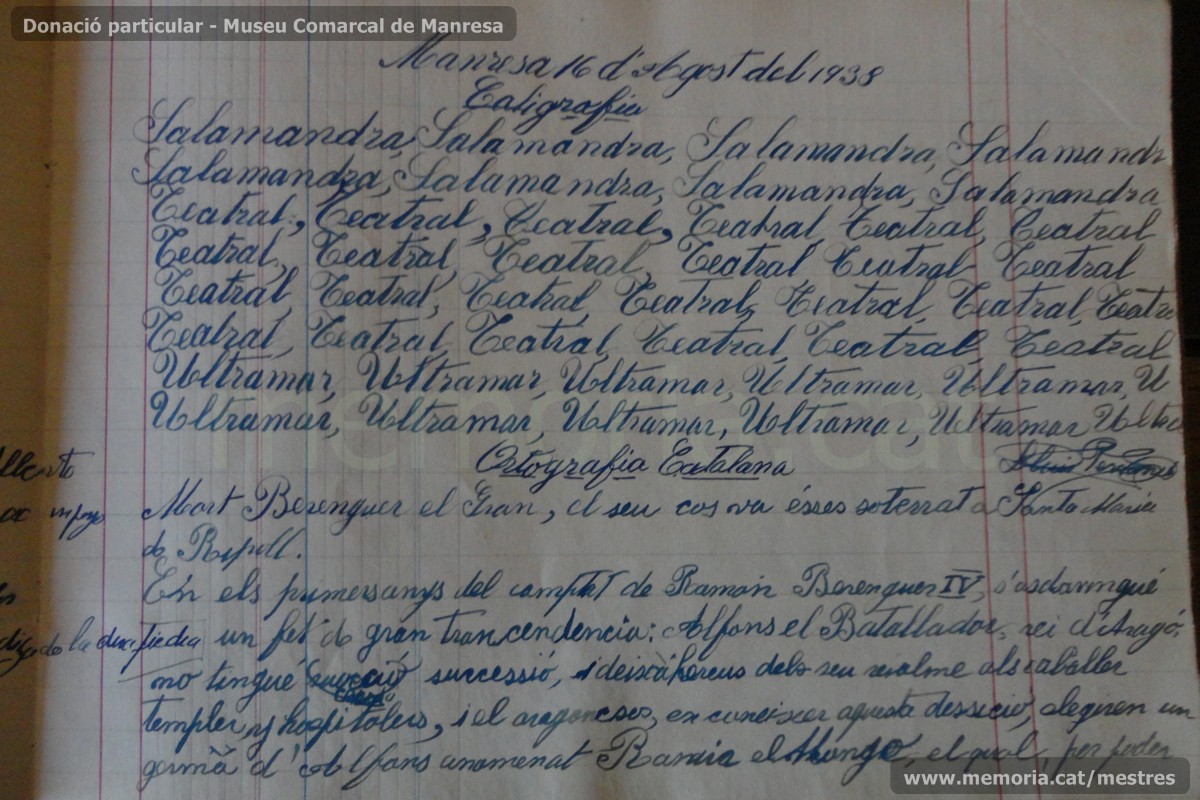 Donació particular - Museu Comarcal de Manresa
Manresa 16 d'Agost del 1938
Caligrafia
Salamandra, Salamandra, Salamandra, Salamandr
Salamandra, Salamandra, Salamandra, Salamandra
Teatral, Teatral, Teatral, Teatral Teatral, Teatral
Teatral, Teatral, Teatral, Teatral Teatral Teatral
Teatral, Teatral, Teatral, Teatral, Teatral, Teatral, Teatra
Teatral, Teatral, Teatral, Teatral, Teatral Teatral
Ultramar, Ultramar, Ultramar, Ultramar, Ultramar, U
Ultramar, Ultramar, Ultramar, Ultramar, Ultramar Ultra
Ortografia Catalana
Mort Berenguer el Gran, el seu cos va ésses soterrat a Santa Maria
de Ripoll.
En els primersanys del comptat de Ramón Berenguer IV, s'esdevingué
un fet de gran trancendencia: Alfons el Batallador, rei d'Aragó,
no tingué successió, i deixà hereus dels seu reialme als caballer
templer y hospitalers, i el aragonesos, en coneixer aquesta dessició, elegiren un
germà d'Alfons anomenat Ramia el Monge, el qual, per poder
www.memoria.cat/mestres
memoria.cat